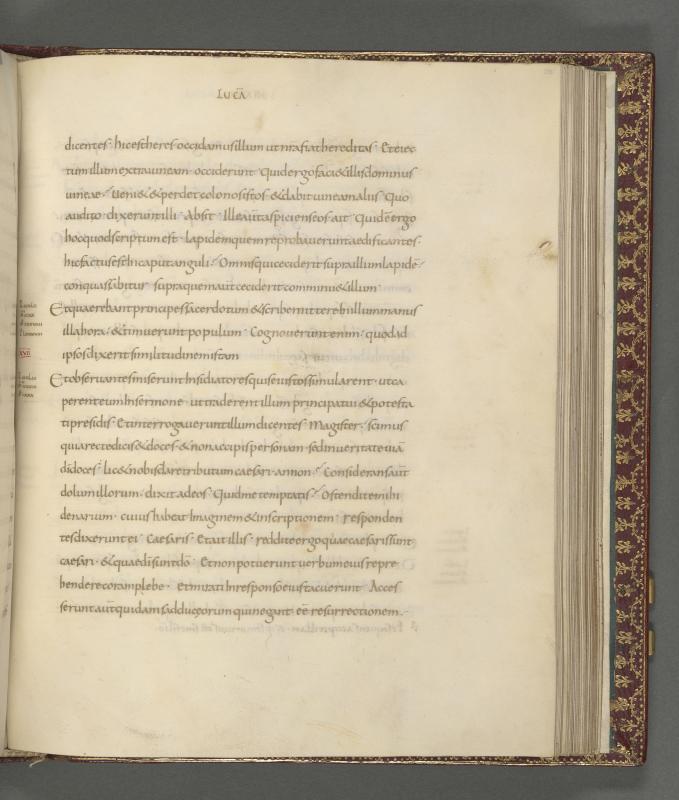 LUCĀ
dicentes· hic est heres occidamus illum ut nr̄a fiat hereditas· Et eiec
tum illum extra uineam· occiderunt· Quid ergo faciet illis dominus
uineae· Ueniet & perdet colonos istos· & dabit uineam aliis· Quo
audito dixerunt illi· Absit· Ille aūt aspiciens eos ait· Quid ē ergo
hoc quod scriptum est· lapidem quem reprobauerunt aedificantes·
hic factus est in caput anguli· Omnis qui ceciderit supra illum lapidē·
conquassabitur· supra quem aut ceciderit comminu& illum·
Et quaerebant principes sacerdotum & scribe mittere in illum manus
illa hora· & timuerunt populum· Cognouerunt enim· quod ad
ipsos dixerit similitudinem istam
Et obseruantes miserunt insidiatores qui se iustos simularent· ut ca
perent eum in sermone· ut traderent illum principatui & potesta
ti presidis· Et interrogauerunt illum dicentes· Magister· scimus
quia recte dicis & doces· & non accipis personam· sed in ueritate uiā
dī doces· lic& nobis dare tributum caesari· an non· Considerans aūt
dolum illorum· dixit ad eos· Quid me temptatis· Ostendite mihi
denarium· cuius habeat imaginem & inscriptionem· responden
tes dixerunt ei· Caesaris· Et ait illis· reddite ergo quae caesaris sunt
caesari· & quae di sunt dō· Et non potuerunt uerbum eius repre
hendere coram plebe· et mirati in responso eius tacuerunt· Acces
serunt aūt quidam sadduceorum qui negant eē resurrectionem·
XVII